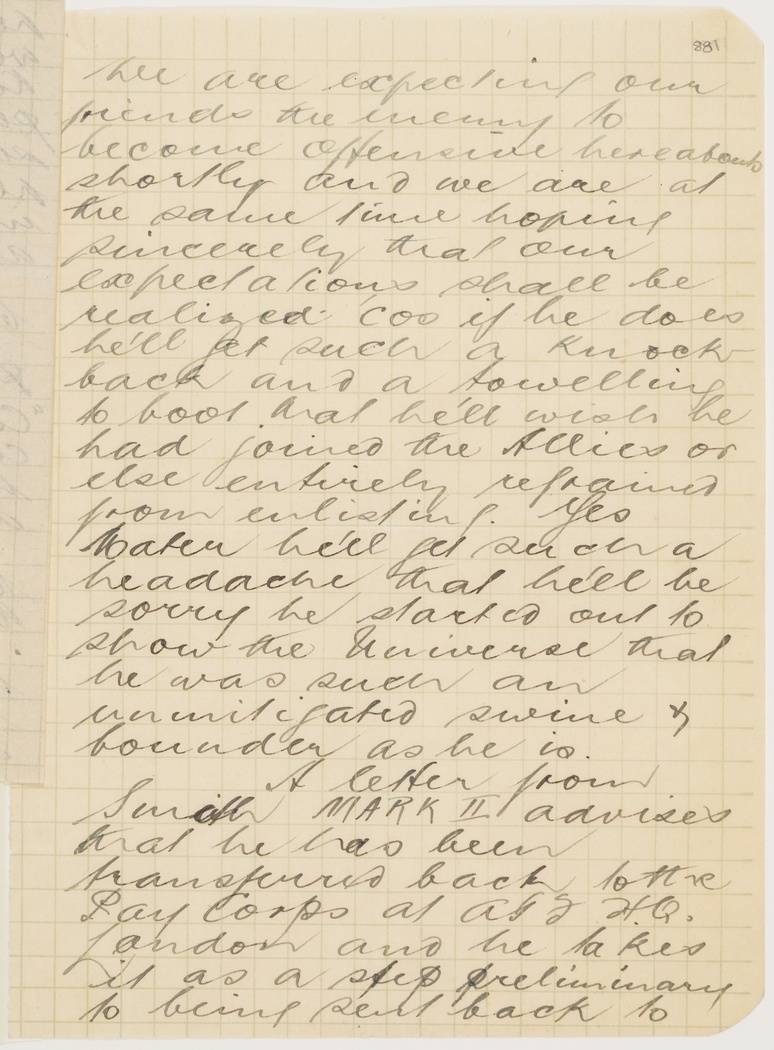 881
We are expecting our
friends the enemy to
become offensive hereabouts
shortly and we are at
the same time hoping
sincerely that our
expectations shall be
realized 'cos if he does
he'll get such a knock
back and a towelling
to boot that he'll wish he
had joined the Allies or
else entirely refrained
from enlisting. Yes
Mater he'll get such a
headache that he'll be
sorry he started out to
show the Universe that
he was such an
unmitigated swine &
bounder as he is.
A letter from
Smith MARK II advises
that he has been
transferred back to the
Pay Corps at AIF H.Q.
London and he takes
it as a step preliminary
to being sent back to